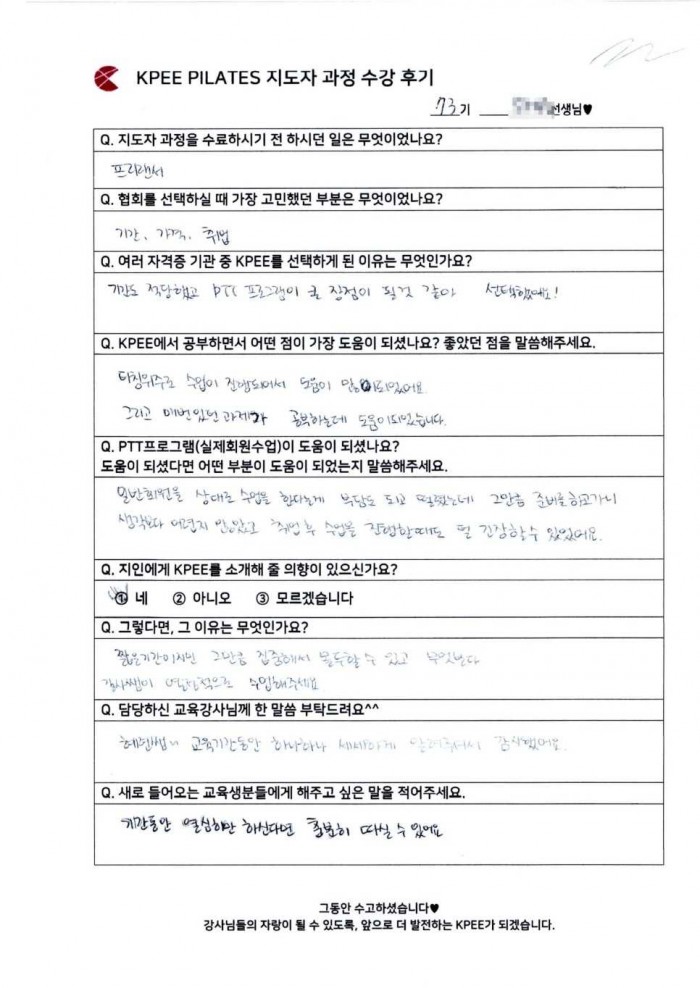 KPEE PILATES 지도자 과정 수강 후기
73기 선생님♥
Q. 지도자 과정을 수료하시기 전 하시던 일은 무엇이었나요?
프리랜서
Q. 협회를 선택하실 때 가장 고민했던 부분은 무엇이었나요?
기간, 가격, 취업
Q. 여러 자격증 기관 중 KPEE를 선택하게 된 이유는 무엇인가요?
기간도 적당했고 PTT 프로그램이 큰 장점이 될것 같아 선택했어요!
Q. KPEE에서 공부하면서 어떤 점이 가장 도움이 되셨나요? 좋았던 점을 말씀해주세요.
티칭위주로 수업이 진행되어서 도움이 많이되었어요
그리고 매번있던 과제가 공부하는데 도움이되었습니다.
Q. PTT프로그램(실제회원수업)이 도움이 되셨나요?
도움이 되셨다면 어떤 부분이 도움이 되었는지 말씀해주세요.
일반회원을 상대로 수업을 한다는게 부담도 되고 떨렸는데 그만큼 준비를하고가니
생각보다 어렵지 않았고 취업 후 수업을 진행할때도 덜 긴장할수 있었어요.
Q. 지인에게 KPEE를 소개해 줄 의향이 있으신가요?
① 네 ② 아니오 ③ 모르겠습니다
Q. 그렇다면, 그 이유는 무엇인가요?
짧은기간이지만 그만큼 집중해서 몰두할 수 있고 무엇보다
강사쌤이 열정적으로 수업해주세요
Q. 담당하신 교육강사님께 한 말씀 부탁드려요^^
교육기간동안 하나하나 세세하게 알려주셔서 감사했어요.
Q. 새로 들어오는 교육생분들에게 해주고 싶은 말을 적어주세요.
기간동안 열심히만 하신다면 충분히 따실 수 있어요
그동안 수고하셨습니다♥
강사님들의 자랑이 될 수 있도록, 앞으로 더 발전하는 KPEE가 되겠습니다.